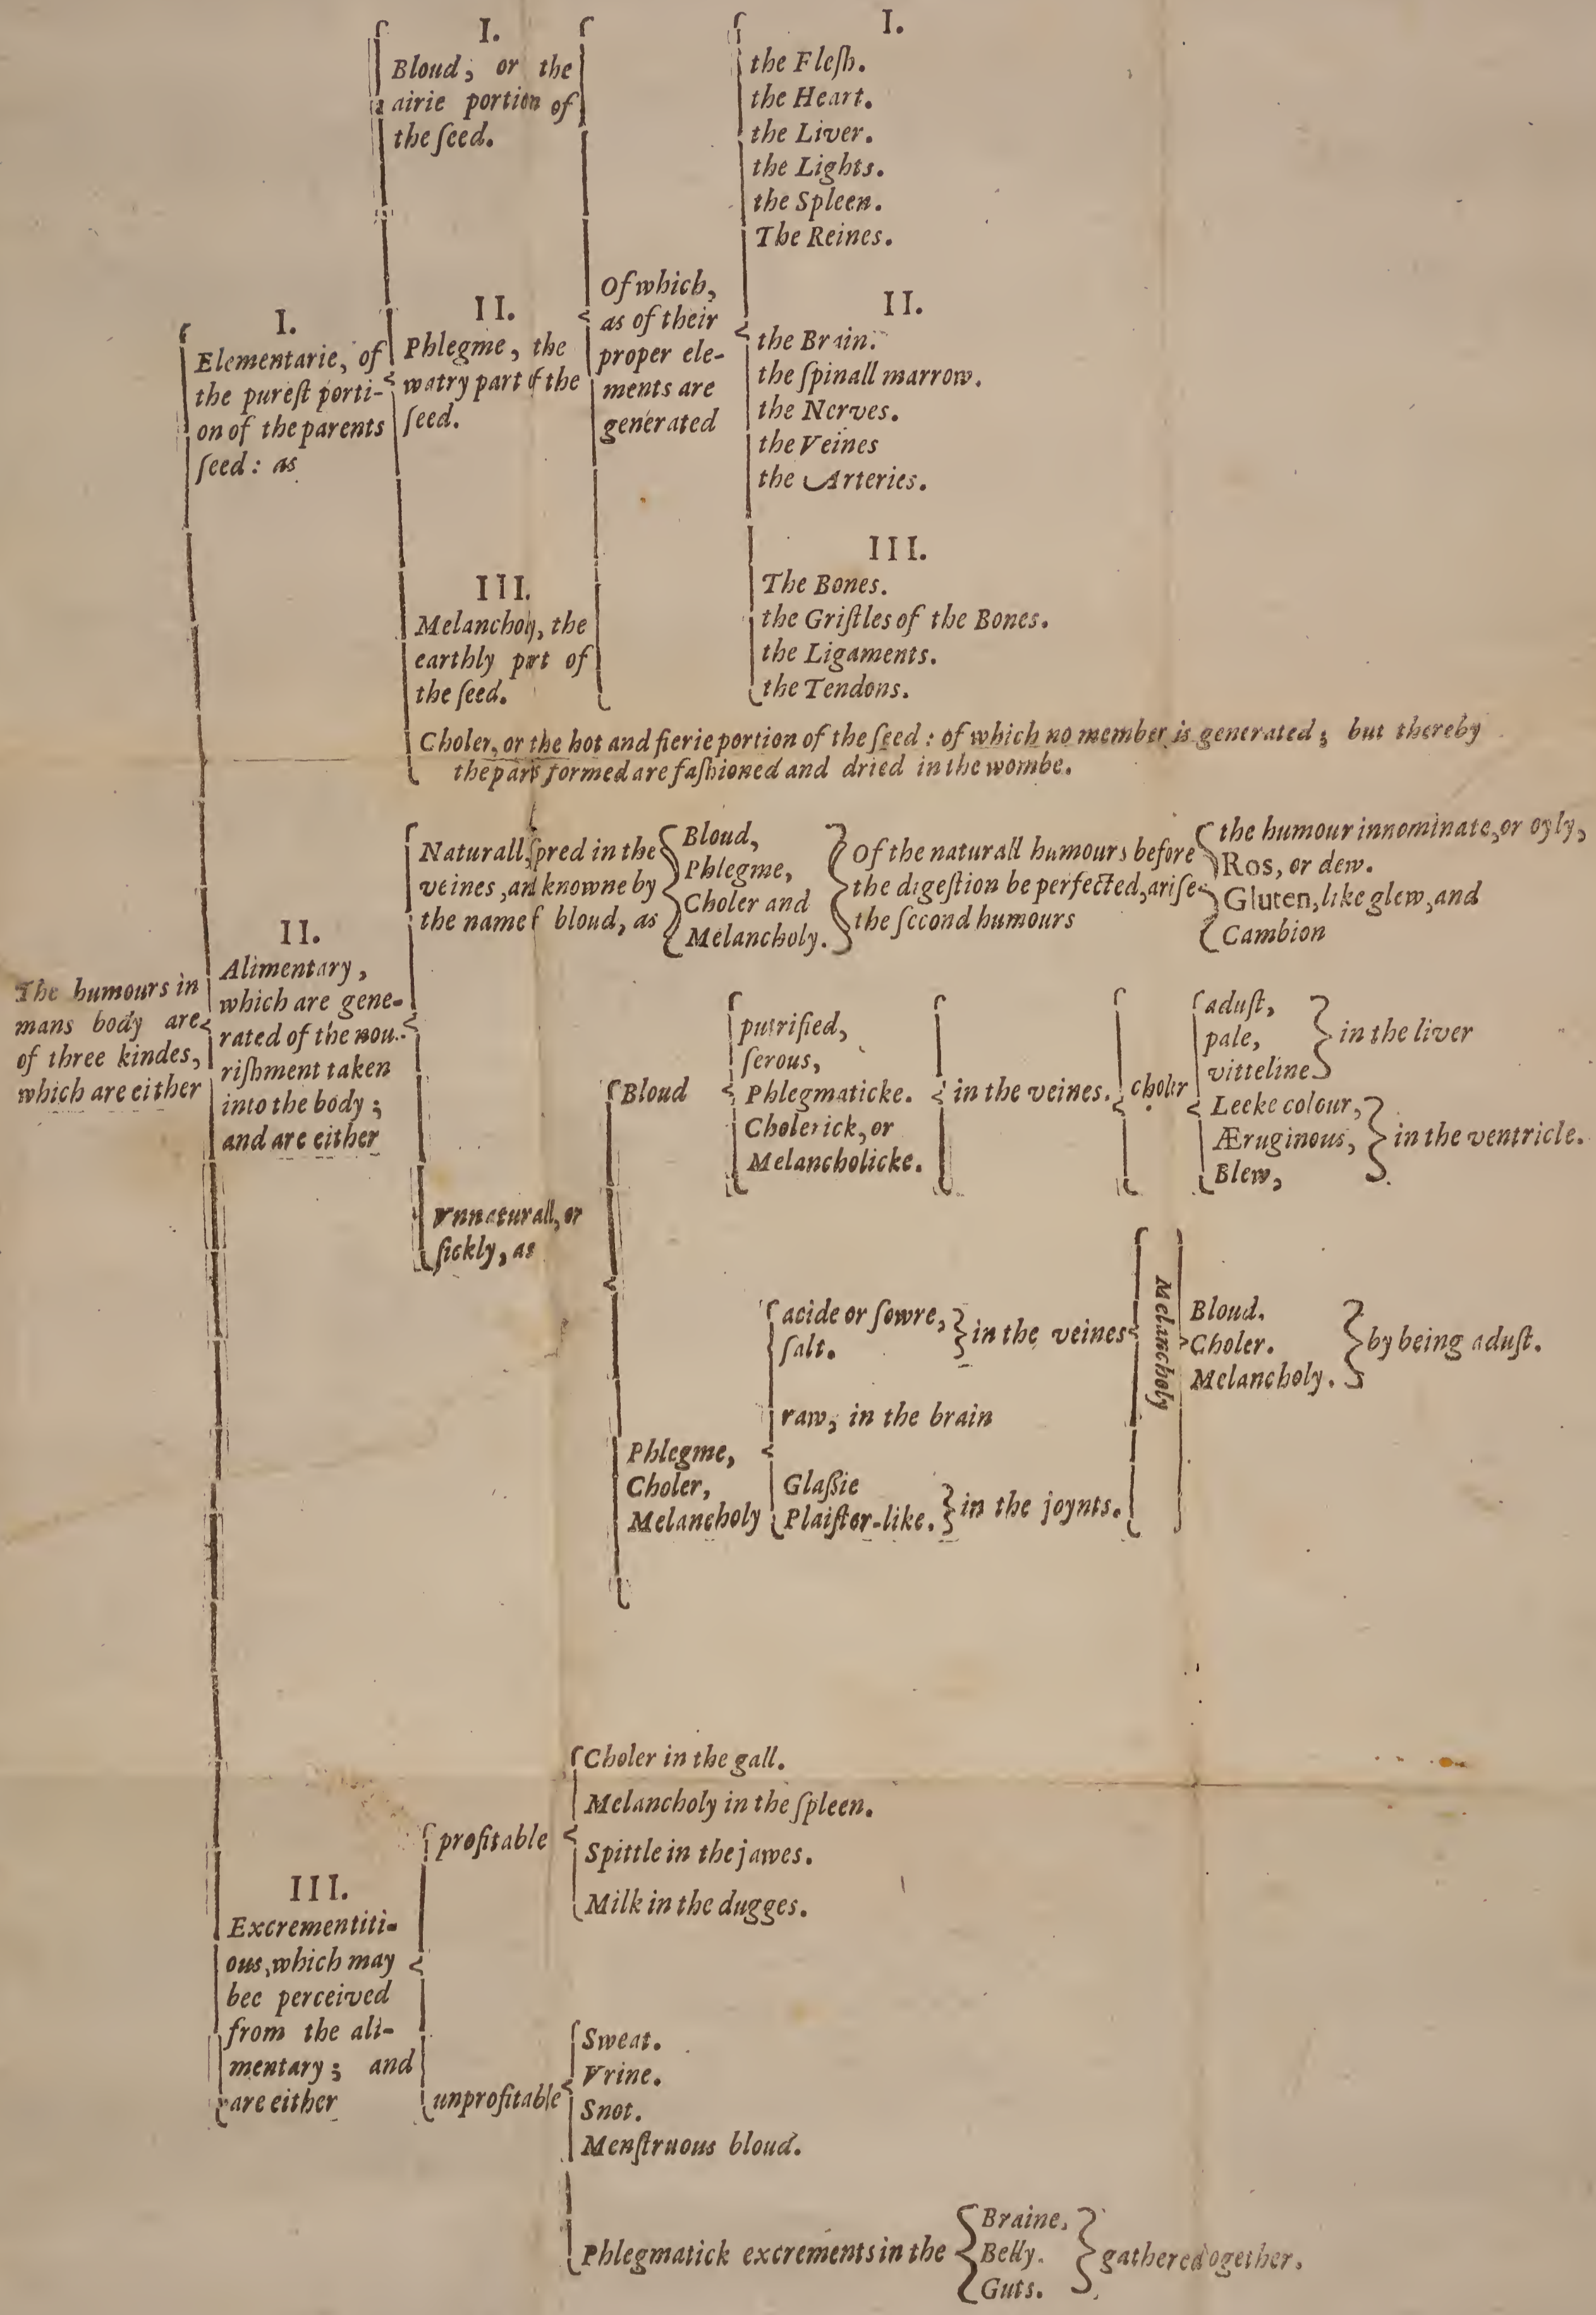 The humours in
mans body are
of three kindes,
which are either
I.
Elementarie, of
the pureſt porti-
on of the parents
ſeed: as
I.
Bloud, or the
airie portion of
the ſeed.
II.
Phlegme, the
watry part of the
ſeed.
III.
Melancholy, the
earthly part of
the ſeed.
Of which,
as of their
proper ele-
ments are
generated
I.
the Fleſh.
the Heart.
the Liver.
the Lights.
the Spleen.
The Reines.
II.
the Brain.
the ſpinall marrow.
the Nerves.
the Veines
the Arteries.
III.
The Bones.
the Griſtles of the Bones.
the Ligaments.
the Tendons.
Choler, or the hot and fierie portion of the ſeed: of which no member is generated; but thereby
the parts formed are faſhioned and dried in the wombe.
II.
Alimentary,
which are gene-
rated of the nou-
riſhment taken
into the body;
and are either
Naturall, ſpred in the
veines, and knowne by
the name of bloud, as
Bloud,
Phlegme,
Choler and
Melancholy.
Of the naturall humours before
the digeſtion be perfected, ariſe
the ſecond humours
the humour innominate, or oyly,
Ros, or dew.
Gluten, like glew, and
Cambion
Vnnaturall, or
ſickly, as
Bloud
putrified,
ſerous,
Phlegmaticke.
Cholerick, or
Melancholicke.
in the veines.
choler
aduſt,
pale,
vitteline
in the liver
Leeke colour,
Æruginous,
Blew,
in the ventricle.
Phlegme,
Choler,
Melancholy
acide or ſowre,
ſalt.
in the veines
raw, in the brain
Glaſsie
Plaiſter-like.
in the joynts.
Melancholy
Bloud.
Choler.
Melancholy.
by being aduſt.
III.
Excrementiti-
ous, which may
bee perceived
from the ali-
mentary; and
are either
profitable
Choler in the gall.
Melancholy in the ſpleen.
Spittle in the jawes.
Milk in the dugges.
unprofitable
Sweat.
Vrine.
Snot.
Menſtruous bloud.
Phlegmatick excrements in the
Braine,
Belly.
Guts.
gathered together.